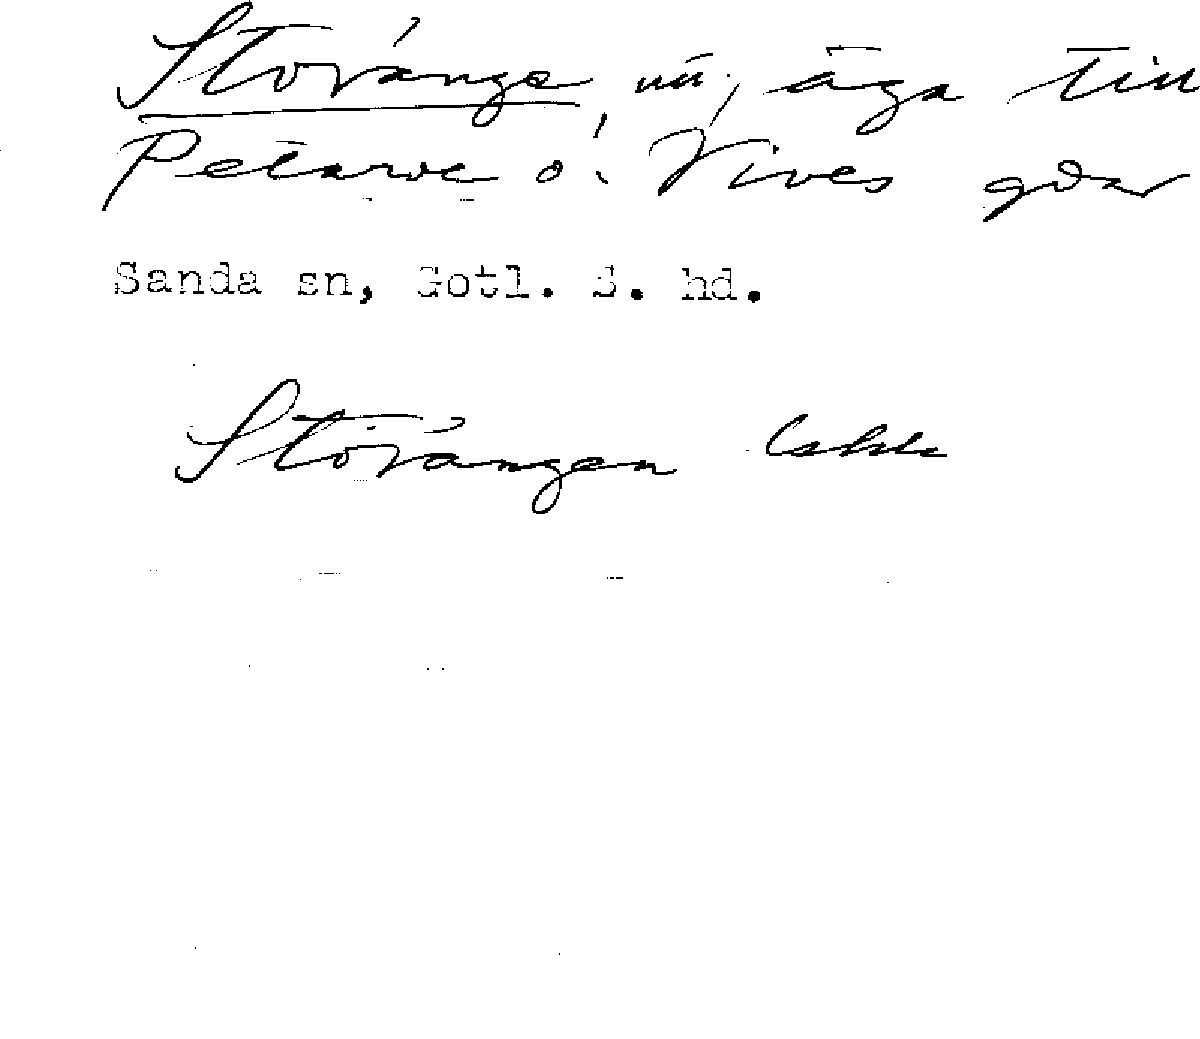 Storänge, nu, äga till
Petarve o. Vives gdar
Sanda sn, Gotl. S. hd.
Storängen